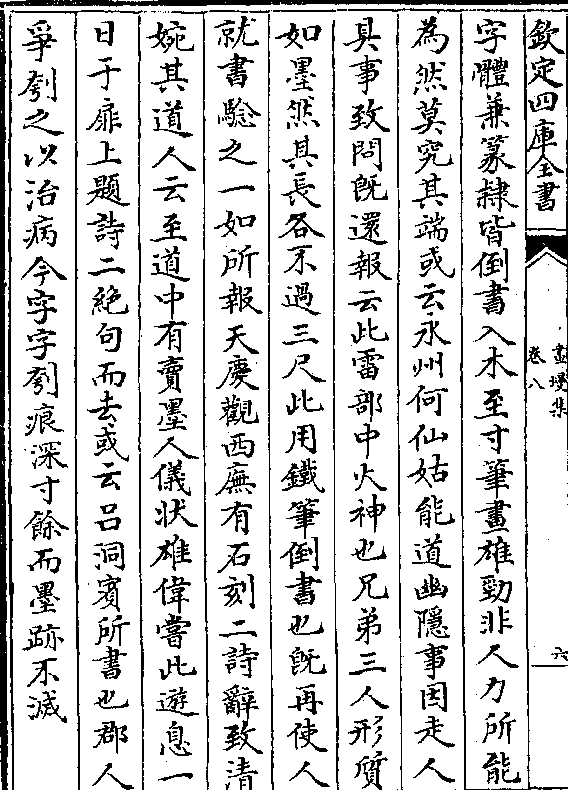 欽定四庫全書
畫墁集
卷八
六
字體兼篆隸皆倒書入木至寸筆畫雄勁非人力所能
為然莫究其端或云永州何仙姑能道幽隱事因走人
具事致問既還報云此雷部中火神也兄弟三人形質
如墨然其長各不過三尺此用鐵筆倒書也既再使人
就書驗之一如所報天慶觀西廡有石刻二詩辭致清
婉其道人云至道中有賣墨人儀狀雄偉嘗此遊息一
日于扉上題詩二絶句而去或云吕洞賓所書也郡人
爭刳之以治病今字字刳痕深寸餘而墨跡不滅